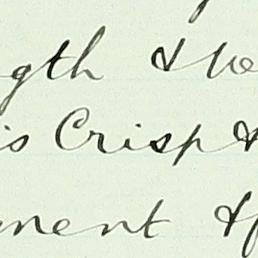 gth &
is Crisp &
nent &